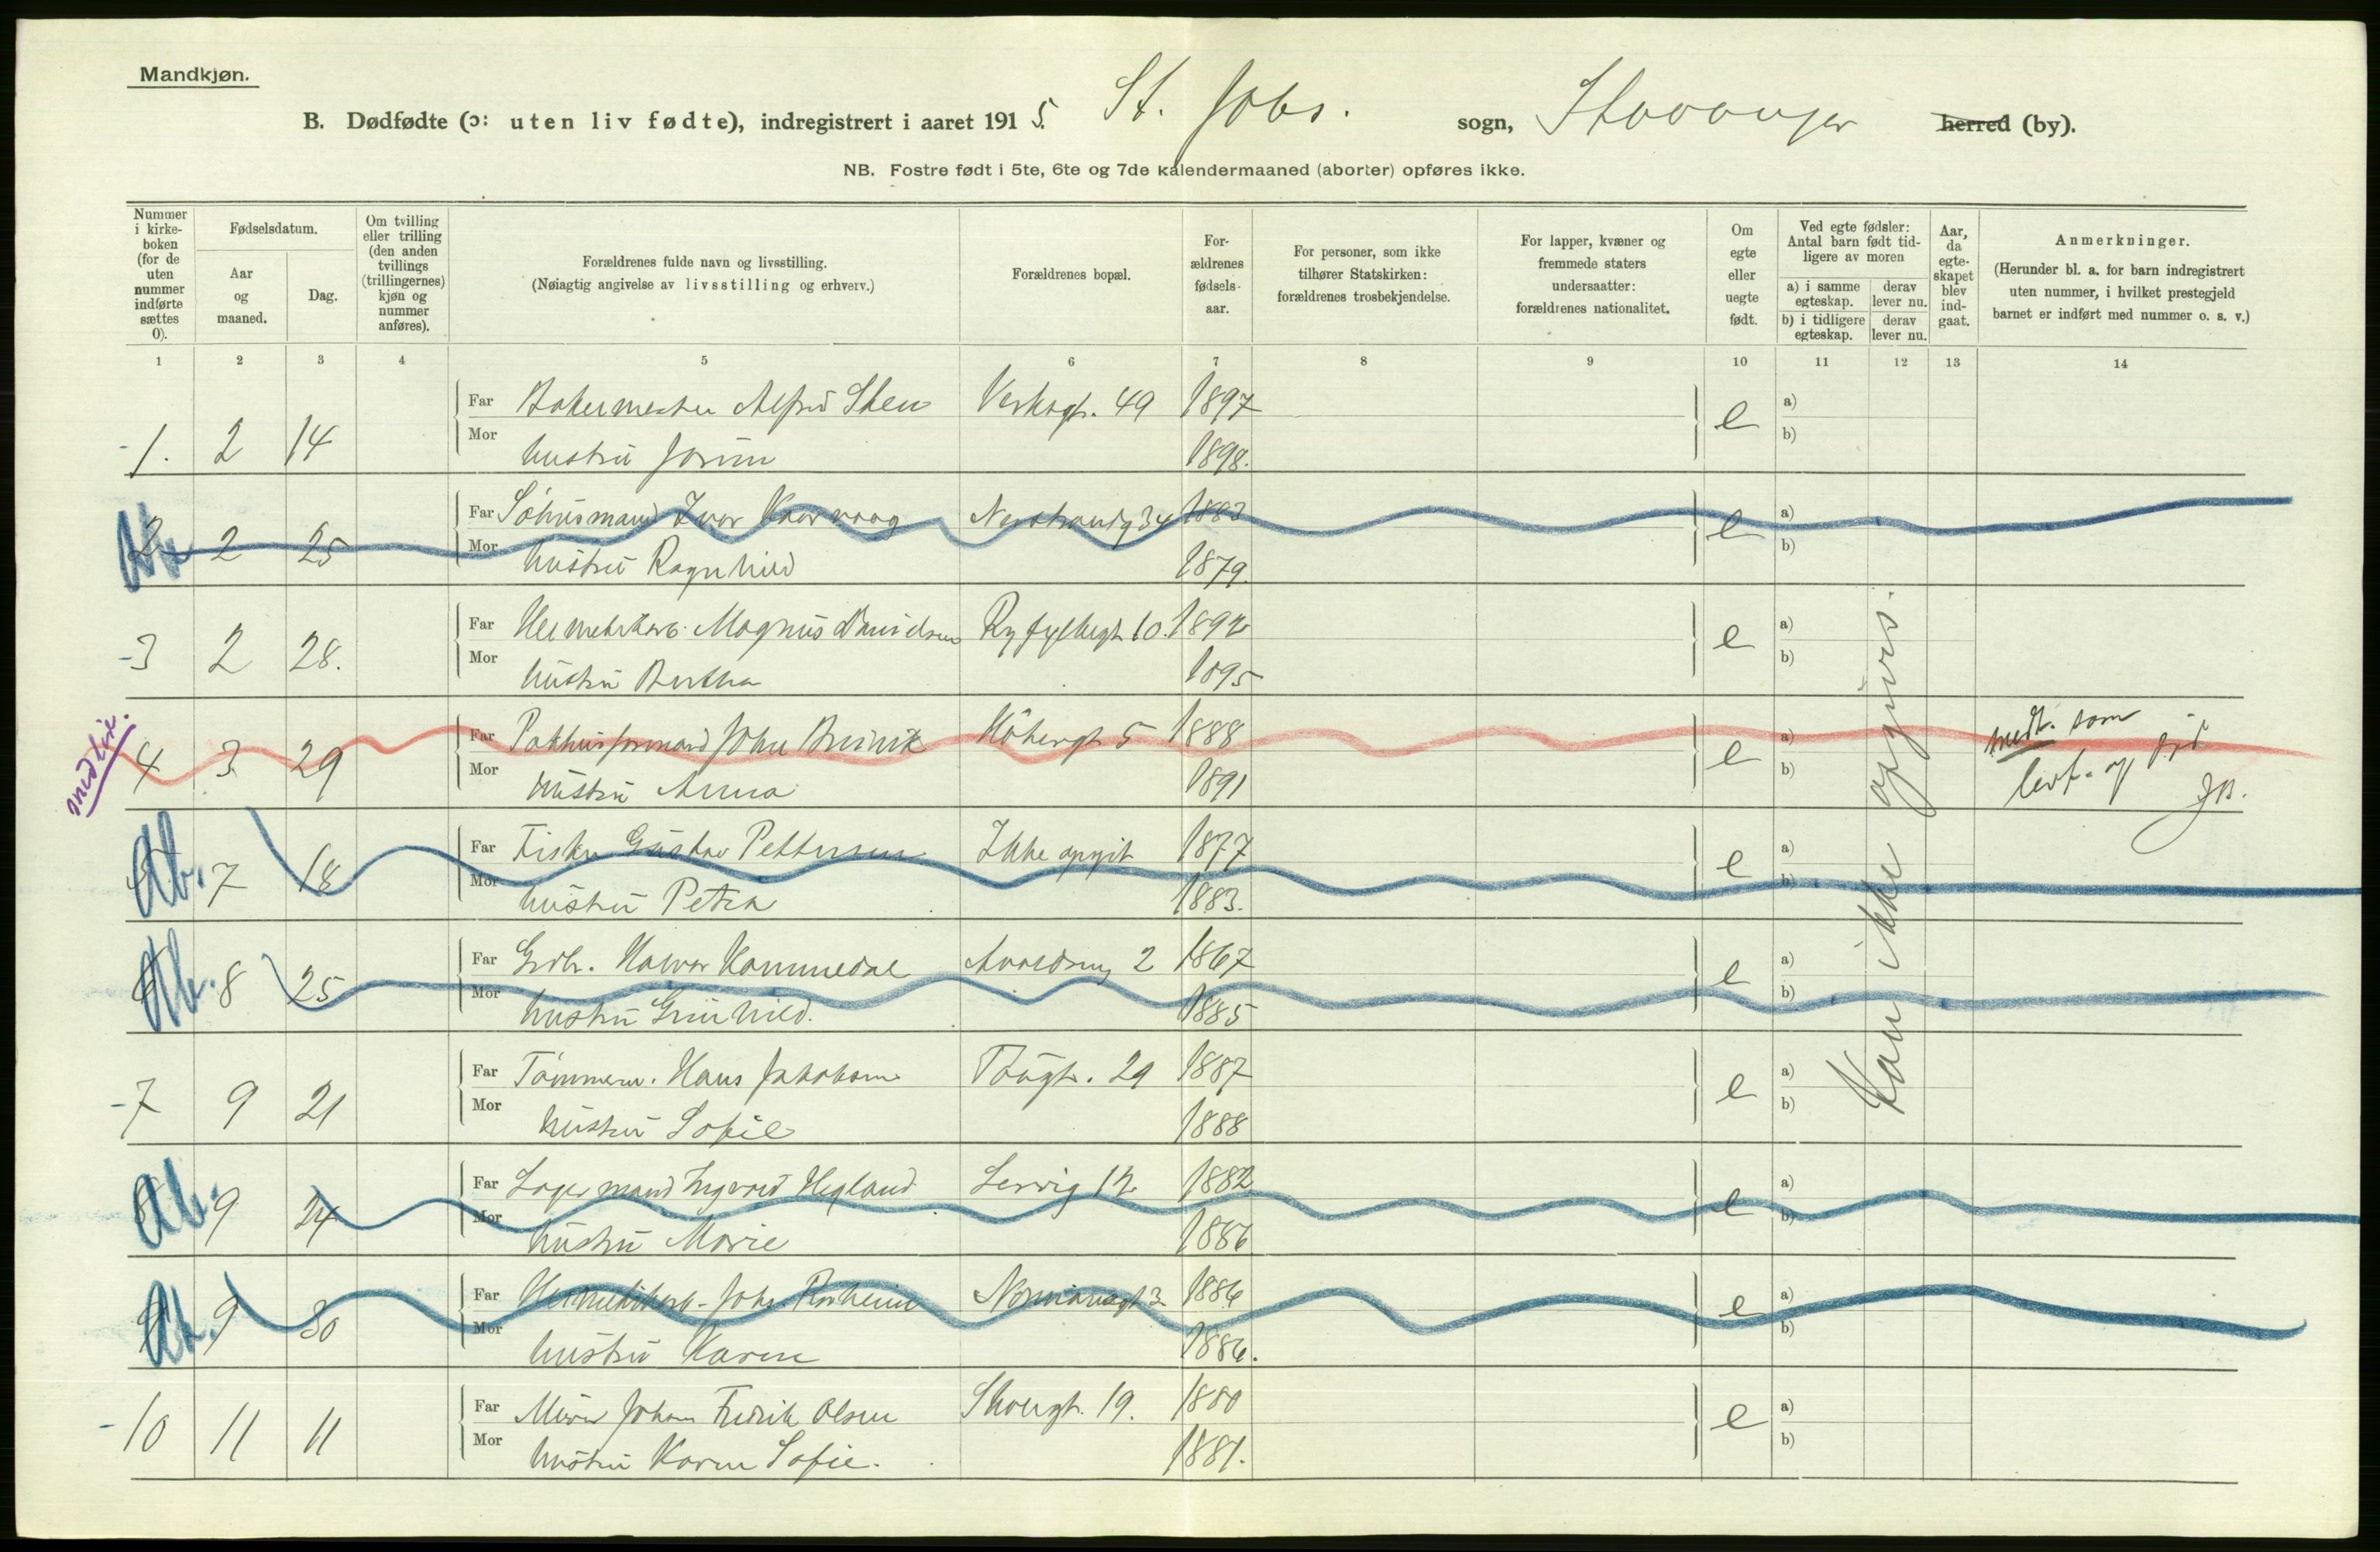 Mandkjøn.
B. Dødfødte (ɔ: uten liv fødte), indregistrert i aaret 1915. St. Johs. sogn, Stavanger herred (by).
NB. Fostre født i 5te, 6te og 7de kalendermaaned (aborter) opføres ikke.
Nummer i kirkeboken (for de uten nummer indførte sættes 0).
Fødselsdatum.
Aar og maaned.
Dag.
Om tvilling eller trilling (den anden tvillings (trillingernes) kjøn og nummer anføres).
Forældrenes fulde navn og livsstilling.
(Nøiagtig angivelse av livsstilling og erhverv.)
Forældrenes bopæl.
Forældrenes fødselsaar.
For personer, som ikke tilhører Statskirken: forældrenes trosbekjendelse.
For lapper, kvæner og fremmede staters undersaatter: forældrenes nationalitet.
Om egte eller uegte født.
Ved egte fødsler: Antal barn født tidligere av moren
a) i samme egteskap. derav lever nu.
b) i tidligere egteskap. derav lever nu.
Aar, da egteskapet blev indgaat.
Anmerkninger.
(Herunder bl. a. for barn indregistrert uten nummer, i hvilket prestegjeld barnet er indført med nummer o. s. v.)
1 2 3 4 5 6 7 8 9 10 11 12 13 14
Far Bakermester Alfred Verksgt. 49 1897 a)
1. 2 14 e
Mor hustru 1898. b)
Far Ivar 34 1883 a)
2 2 25 e
Mor hustru Ragnhild 1879. b)
Far Hermetikarb. Magnus Danielsen Ryfylkegt. 10. 1892 a)
3 2 28. e
Mor hustru Bertha 1895 b)
Far Pakhusformand John 5 1888 a) medt. som
4 3 29 e levf. og død
Mor hustru Anna 1891 b)
med liv.
Far Fisker Gustav Pettersen Ikke opgit 1877 a)
Ab. 5 7 18 e
Mor hustru Petra 1883. b)
Far Hammedal 2 1867 a)
Ab. 6 8 25 e
Mor hustru Gunhild. 1885 b)
Far Tømmerm. Hans Jakobsen 1887 a)
7 9 21 e
Mor hustru Sofie 1888 b)
Far Lagermand Ingvald Hegland Lervig 12 1882 a)
Ab. 8 9 24 e
Mor hustru Marie 1886 b)
Far Hermetikarb. Johs. 3 1886 a)
Ab. 9 9 30 e
Mor hustru Karen 1886. b)
Far Murer Johan Fredrik Olsen 19. 1880 a)
10 11 11 e
Mor hustru Karen Sofie. 1881. b)
Kan ikke opgives.